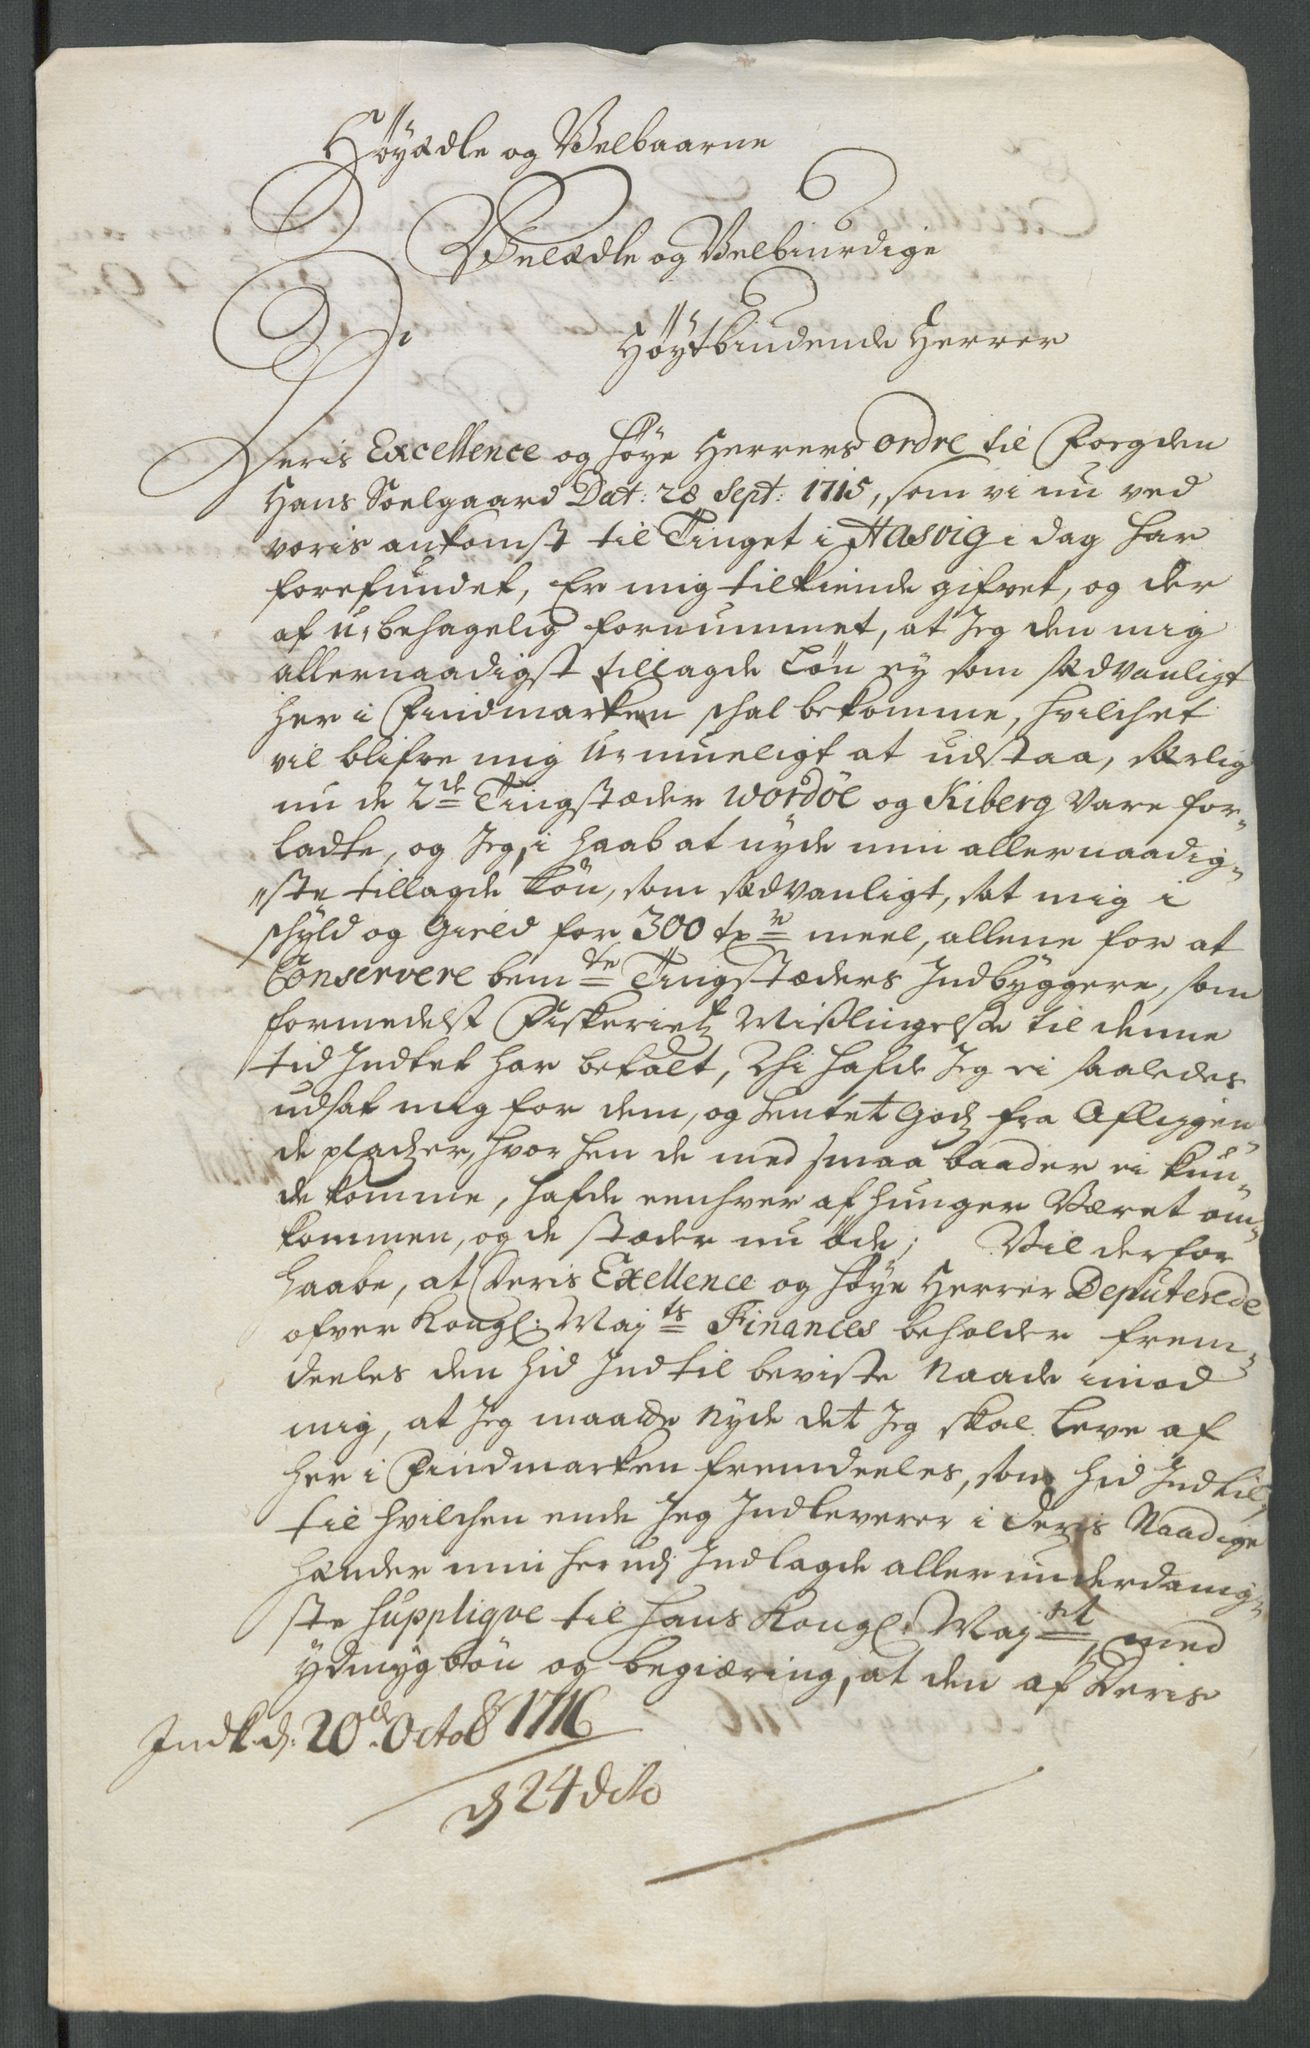 Höyædle og Velbaarne
Velædle og Velbiurdige
Höytbiudende Herrer
Deris Excellence og Höye Herrers ordre til Foegden
Hans Soelgaard Dat: 28 Sept: 1715, som vi nu ved
voris ankomst til Tinget i Hasvig i dag har
forefundet, Er mig tilkiende gifvet, og der
af u,behagelig fornummet, at Jeg den mig
allernaadigst tillagde Løn ey som sædvanligt
her i Findmarken schal bekomme, hvilchet
vil blifve mig U,mueligt at udstaa, særlig
nu de 2de Tingstæder Wordöe og Kiberg Vare for-
ladte, og Jeg, i haab at nyde min allernaadig-
ste tillagde Løn, som sædvanligt, sat mig i
schyld og Gield for 300 tr meel, allene for at
Conservere bemte Tingstæders Indbyggere, som
formedelst Fiskerietz Mislingelse til denne
tid Indtet har betalt, Thi hafde Jeg ei saaledes
udsat mig for dem, og hentet Godz fra Afliggen-
de pladzer, hvor hen de med smaa baader ei kun-
de komme, hafde eenhver af hunger Været om-
kommen, og de stæder nu øde; Vil derfor
haabe, at Deris Exellence og Höye Herrer Deputerede
ofver Kongl: Mayts Finances beholder frem-
deeles den hid Indtil beviste Naade imod
mig, at Jeg maatte Nyde det Jeg skal leve af
her i Findmarken fremdeeles, som hid Indtil,
til hvilchen ende Jeg Indleverer i Deris Naadige
hænder min herudj Indlagde allerunderdanig-
ste Supplique til Hans Kongl: Mayst, med
ydmyg bøn og begiæring, at den af Deris
Indk. d: 20de Octob 1716
d 24 dito